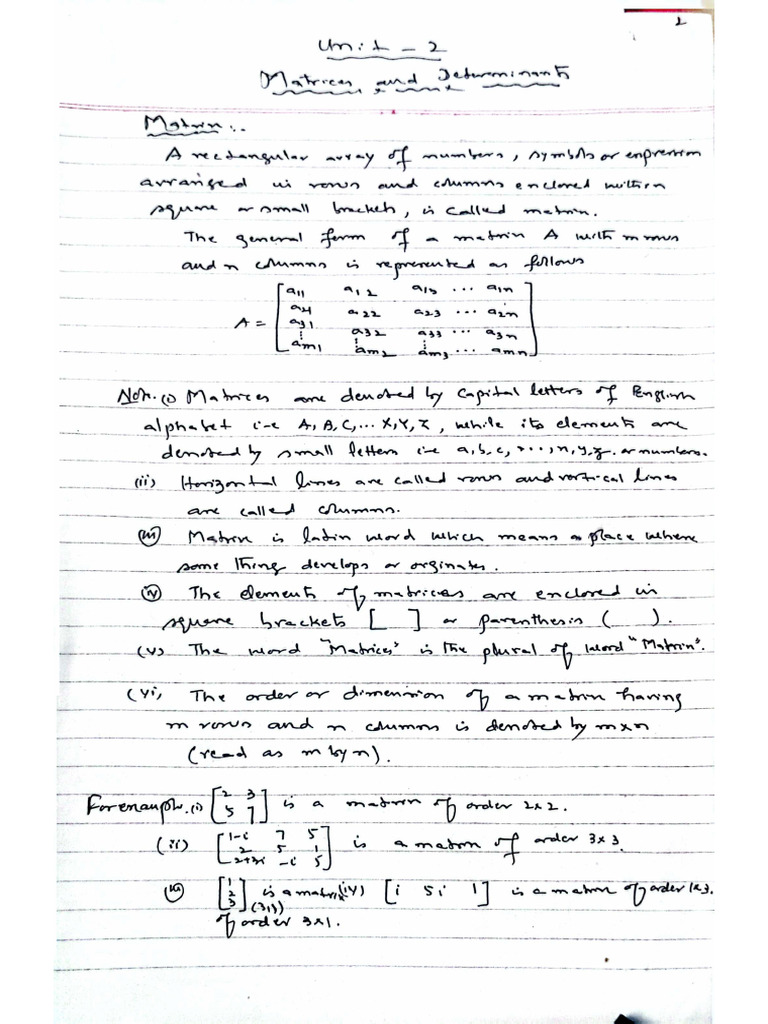 2
Unit - 2
Matrices and Determinants
Matrix:.
A rectangular array of numbers, symbols or expression
arranged in rows and columns enclosed within
square or small brackets, is called matrix.
The general form of a matrix A with m rows
and n columns is represented as follows
A = [ a11 a12 a13 ... a1n
a21 a22 a23 ... a2n
a31 a32 a33 ... a3n
⋮ ⋮ ⋮
am1 am2 am3 ... amn ]
Note. (i) Matrices are denoted by capital letters of English
alphabet i-e A, B, C, ... X, Y, Z, while its elements are
denoted by small letters i.e a, b, c, ..., x, y, z. or numbers.
(ii) Horizontal lines are called rows and vertical lines
are called columns.
(iii) Matrix is latin word which means a place where
some thing develops or orginates.
(iv) The elements of matrices are enclosed in
square brackets [ ] or parenthesis ( ).
(v) The word "Matrices" is the plural of word "Matrix".
(vi) The order or dimension of a matrix having
m rows and n columns is denoted by m×n
(read as m by n).
For example. (i) [ 2 3
5 7 ] is a matrix of order 2×2.
(ii) [ 1-i 7 5
2 5 1
2+3i -i 5 ] is a matrix of order 3×3.
(iii) [ 1
2
3 ] is a matrix (iv) [ i 5i 1 ] is a matrix of order 1×3.
(3,3)
of order 3×1.